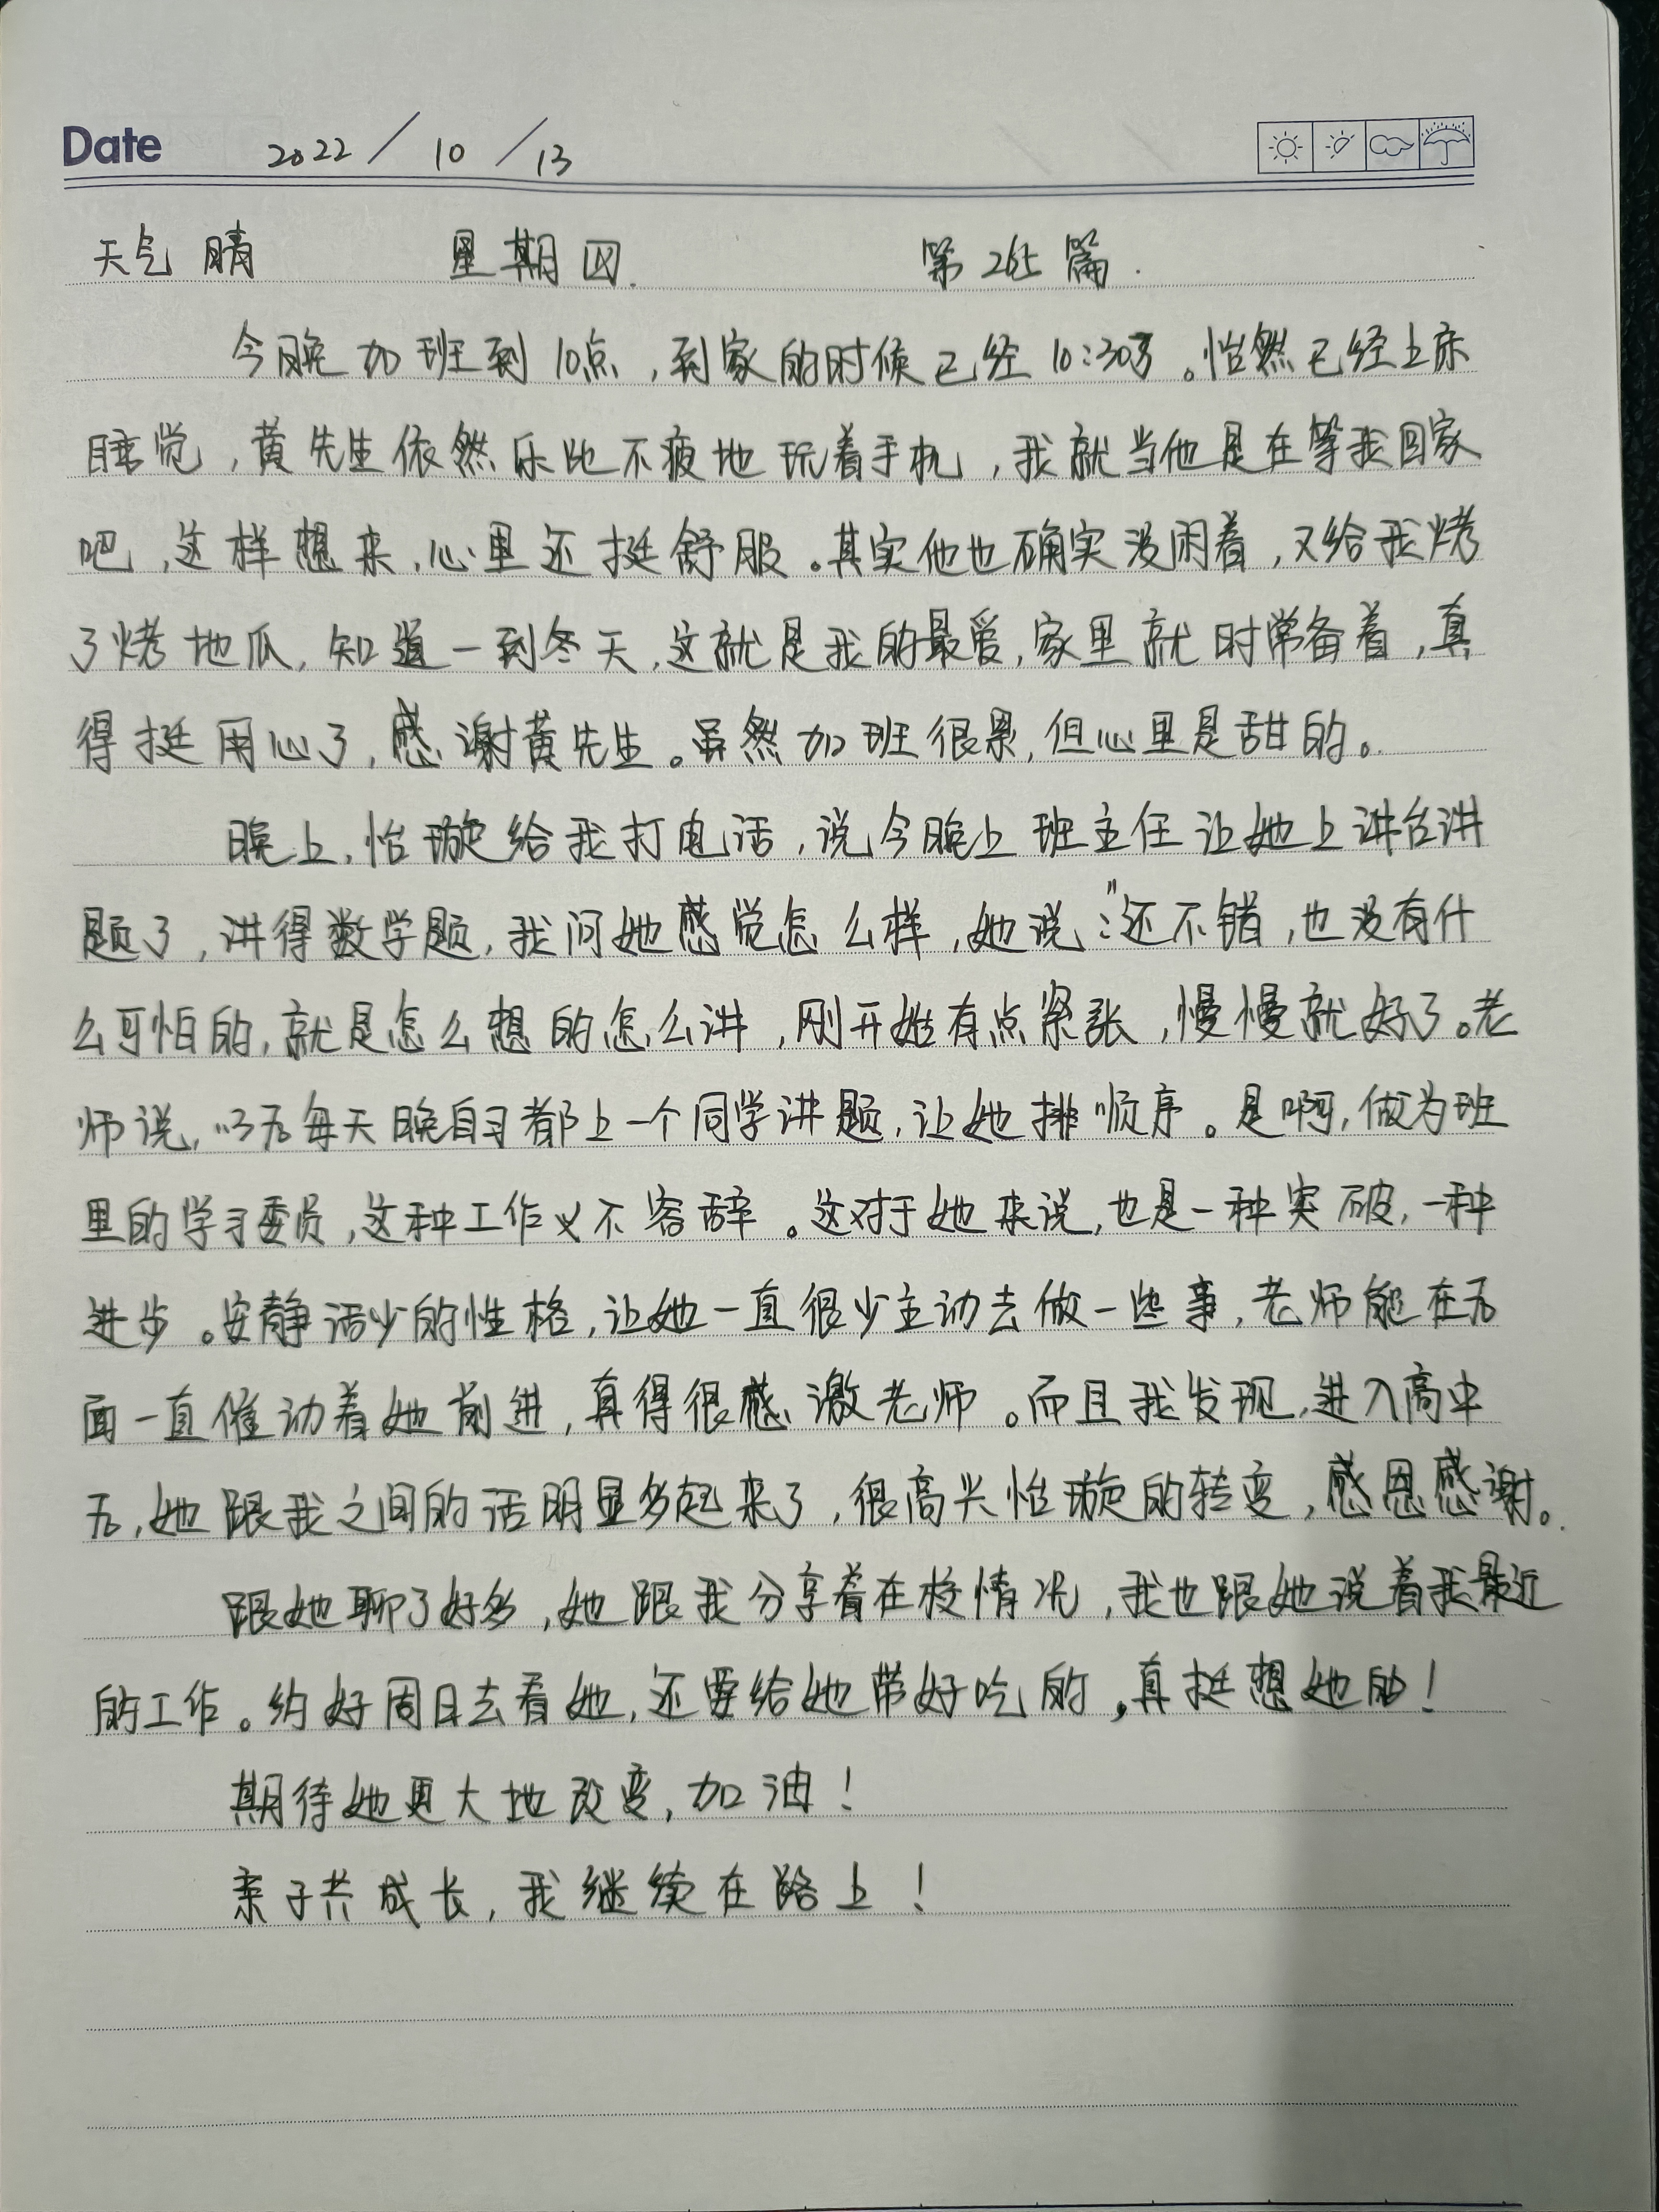 Date 2022 / 10 / 13
天气 晴 星期四. 第265篇.
今晚加班到10点,到家的时候已经10:30了。怡然已经上床
睡觉,黄先生依然乐此不疲地玩着手机,我就当他是在等我回家
吧,这样想来,心里还挺舒服。其实他也确实没闲着,又给我烤
了烤地瓜,知道一到冬天,这就是我的最爱,家里就时常备着,真
得挺用心了,感谢黄先生。虽然加班很累,但心里是甜的。
晚上,怡璇给我打电话,说今晚上班主任让她上讲台讲
题了,讲得数学题,我问她感觉怎么样,她说:"还不错,也没有什
么可怕的,就是怎么想的怎么讲,刚开始有点紧张,慢慢就好了。老
师说,以后每天晚自习都上一个同学讲题,让她排顺序。是啊,做为班
里的学习委员,这种工作义不容辞。这对于她来说,也是一种突破,一种
进步。安静话少的性格,让她一直很少主动去做一些事,老师能在后
面一直催动着她前进,真得很感激老师。而且我发现,进入高中
后,她跟我之间的话明显多起来了,很高兴怡璇的转变,感恩感谢。
跟她聊了好多,她跟我分享着在校情况,我也跟她说着我最近
的工作。约好周日去看她,还要给她带好吃的,真挺想她的!
期待她更大地改变,加油!
亲子共成长,我继续在路上!